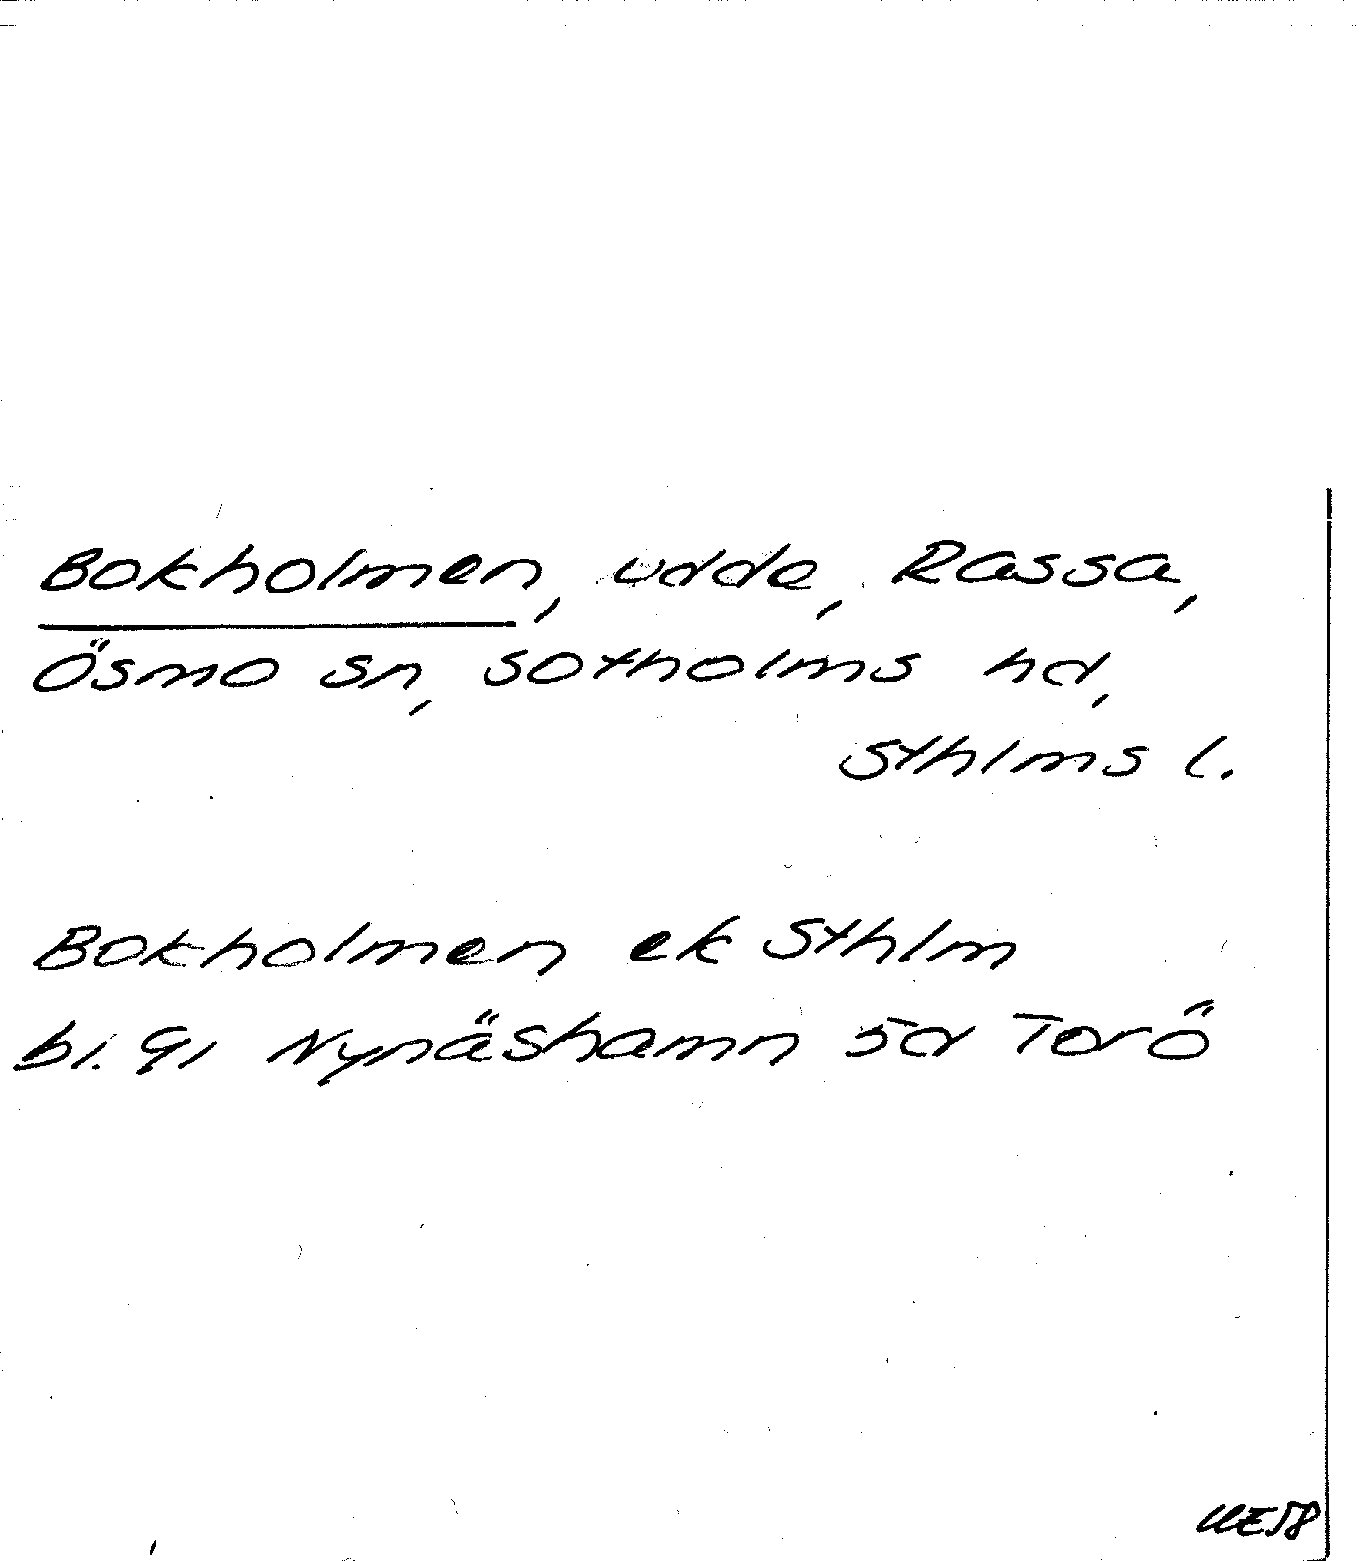 Bokholmen, udde, Rassa,
Ösmo sn, Sotholms hd,
Sthlms l.
Bokholmen ek Sthlm
bl. 91 Nynäshamn 5d Torö
UE58